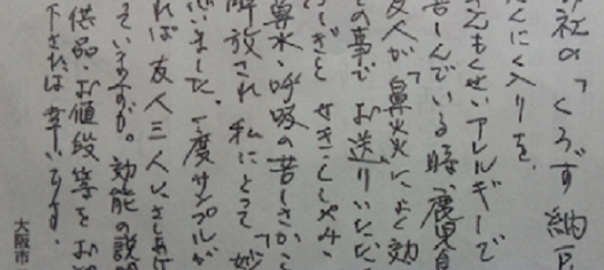 社の「くろず納豆
んにく入りを、
きんもくせいアレルギーで
苦しんでいる時、鹿児島
友人が「鼻炎によく効
の事でお送りいただ
せきこしゃみ、
鼻水、呼吸の苦しさから
解放され私にとって「妙
いました。一度サンプルが
れば友人三人にさしあげ
っているのですが。効能の説明
供品・お値段等をお知
下されば幸いです。
大阪市